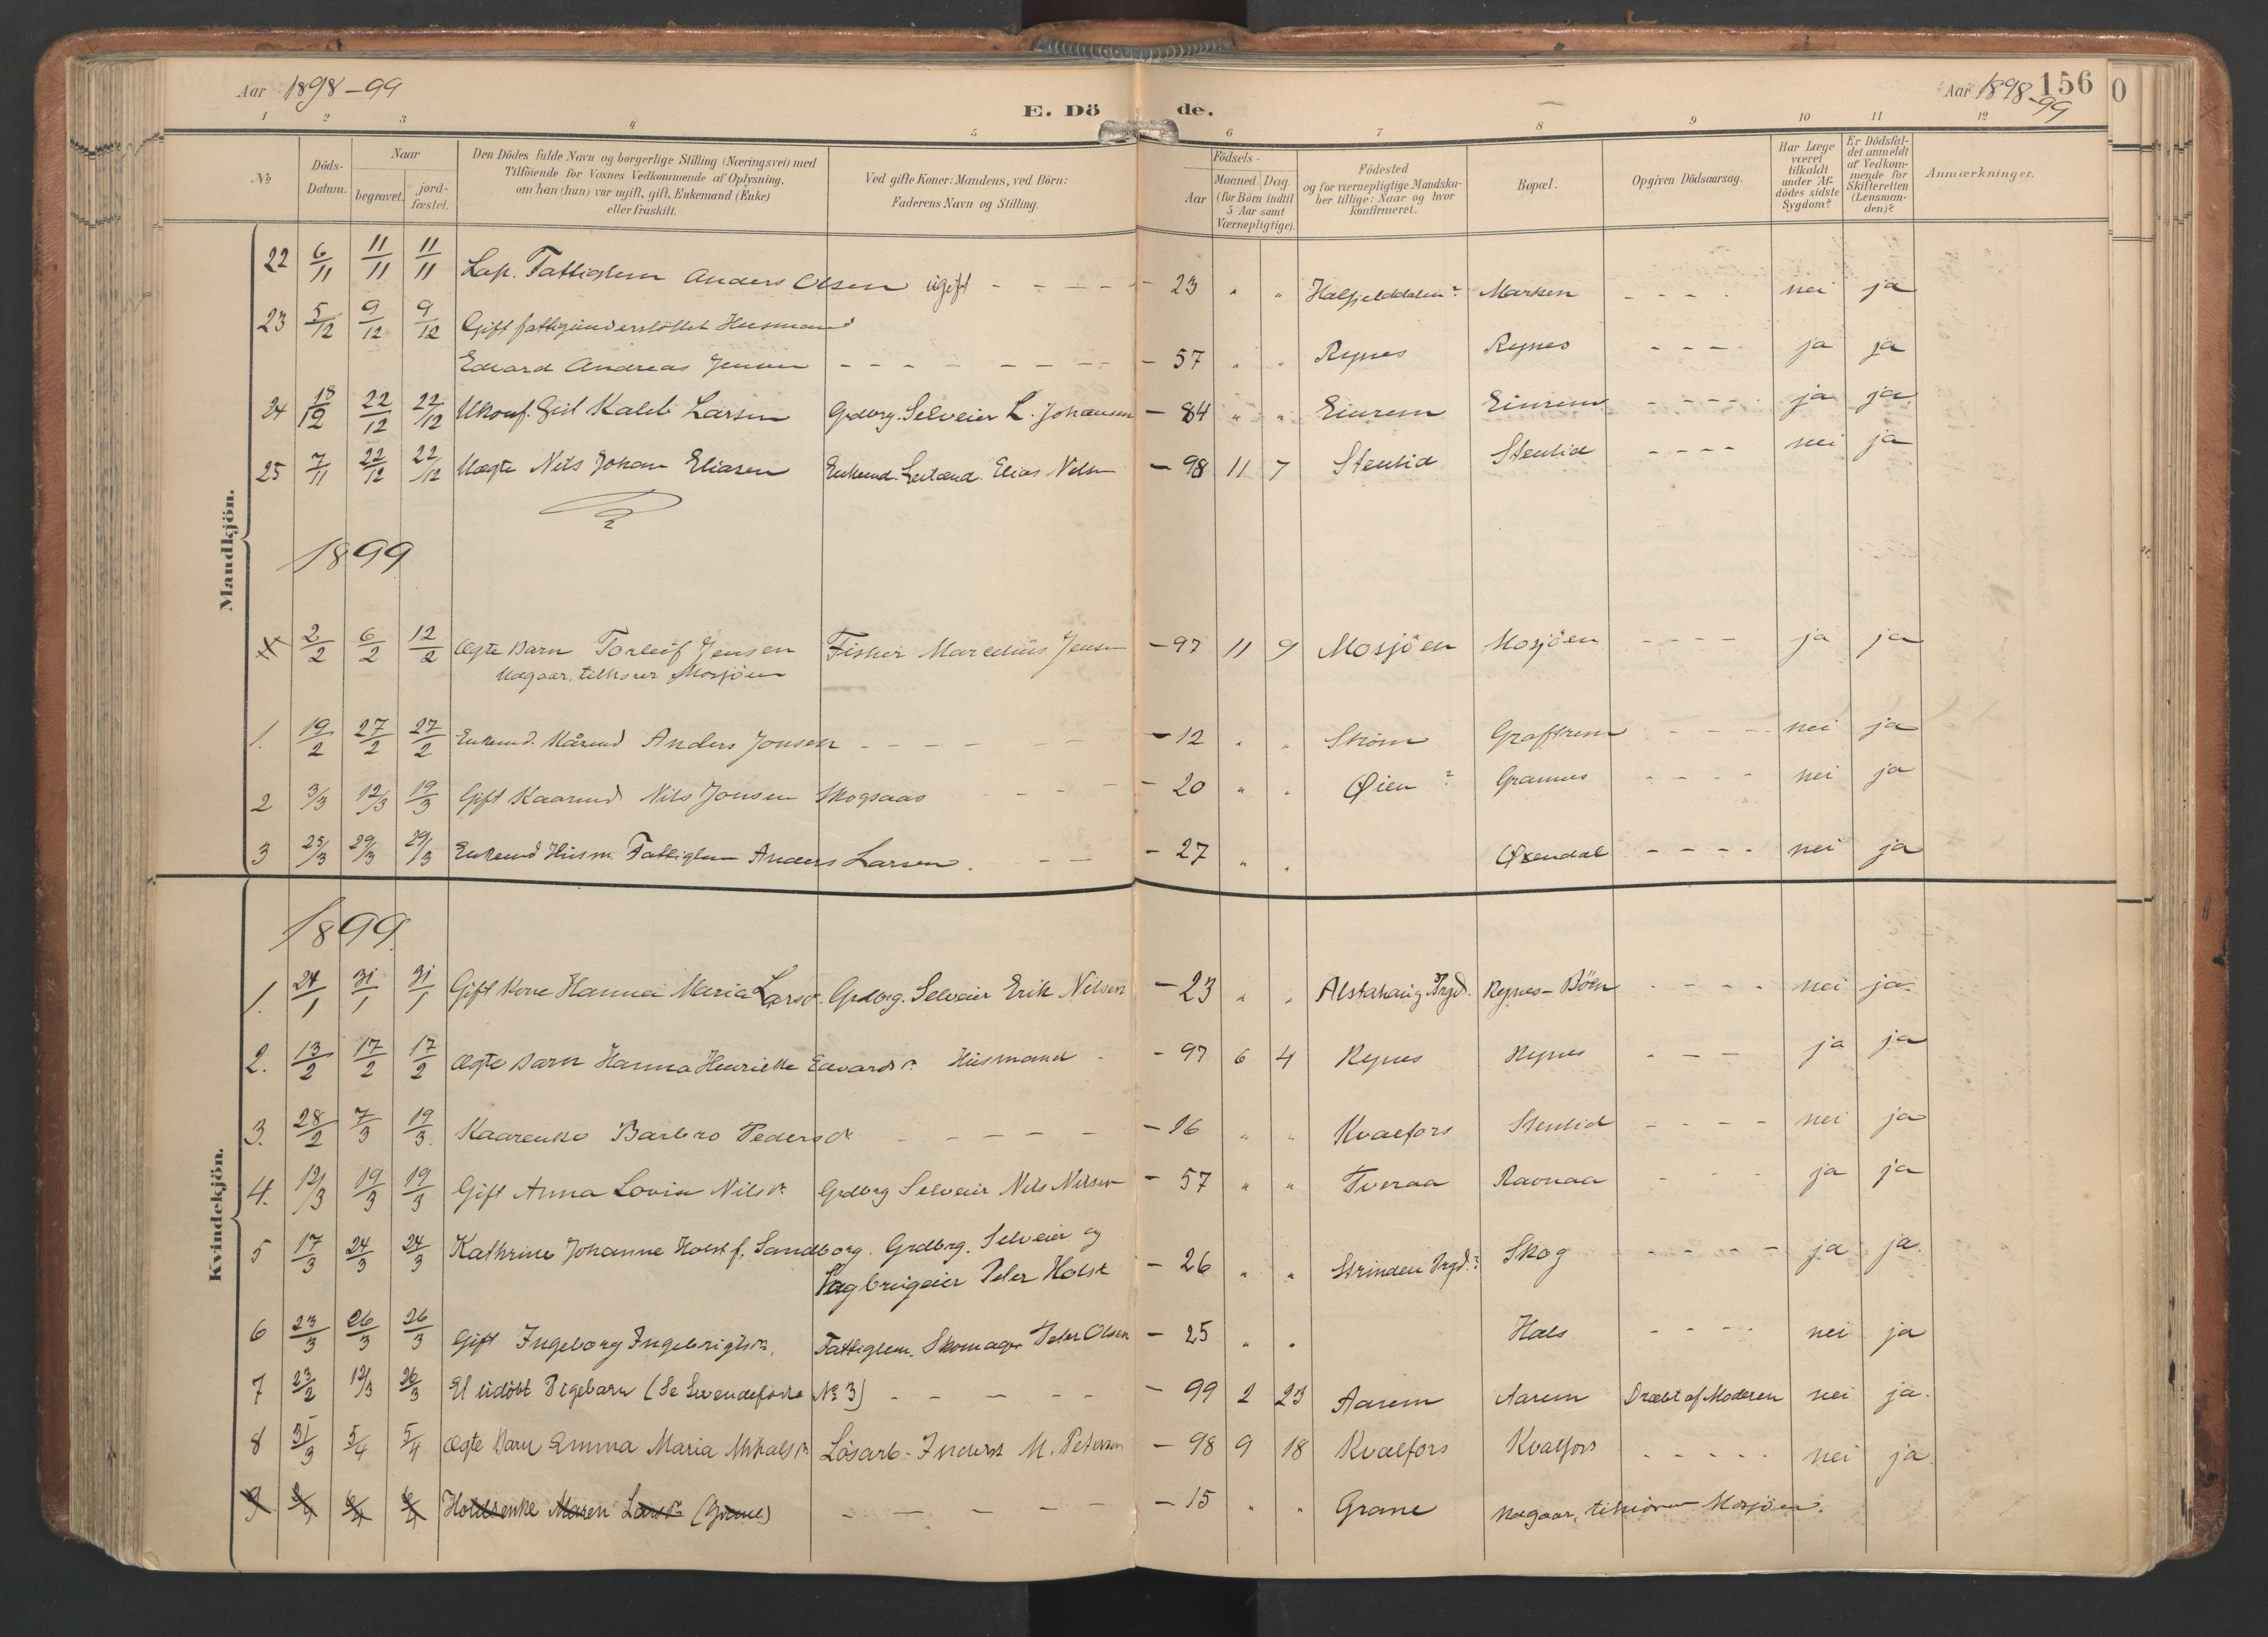 Aar 1898-99
E. Dö de.
Aar 1898-99
156
0
1 2 3 4 5 6 7 8 9 10 11 12
No
Döds-Datum.
Naar
begravet. jord-fæstet.
Den Dödes fulde Navn og borgerlige Stilling (Næringsvei) med
Tilföiende for Voxnes Vedkommende af Oplysning,
om han (hun) var ugift, gift, Enkemand (Enke)
eller fraskilt.
Ved gifte Koner: Mandens, ved Börn:
Faderens Navn og Stilling.
Födsels-
Aar
Maaned. Dag.
(for Börn indtil
5 Aar samt
Værnepligtige).
Födested
og for værnepligtige Mandska-
ber tillige: Naar og hvor
konfirmeret.
Bopæl.
Opgiven Dödsaarsag.
Har Læge
været
tilkaldt
under Af-
dödes sidste
Sygdom?
Er Dödsfal-
det anmeldt
af Vedkom-
mende for
Skifteretten
(Lensman-
den)?
Anmærkninger.
Mandkjön.
22 6/11 11/11 11/11 Lap. Fattiglem Anders Olsen ugift - - - - - 23 " " Halfjelddalen? Marken - - - - nei ja
23 5/12 9/12 9/12 Gift fattigunderstöttet Husmand
Edvard Andreas Jensen - - - - - - - - 57 " " Rynes Rynes - - - - ja ja
24 18/12 22/12 22/12 Ukonf. Gut Kaleb Larsen Grdbrg. Selveier L. Johansen - 84 " " Einrem Einrem - - - - ja ja
25 7/11 22/12 22/12 Uægte Nils Johan Eliasen Enkemd. Leilænd. Elias Nilsn - 98 11 7 Stenlid Stenlid - - - - nei ja
1899
2/2 6/2 12/2 Ægte Barn Torleif Jensen Fisker Marcelius Jensen - 97 11 9 Mosjöen Mosjöen - - - - ja ja
Udgaar, tilhører Mosjöen
1. 19/2 27/2 27/2 Enkemd. Kårmd Anders Jonsen - - - - - - 12 " " Strøm Graftrem - - - - nei ja
2 3/3 12/3 19/3 Gift Kaarmd Nils Jonsen Skogsaas - - - - 20 " " Øien? Grannes - - - - nei ja
3 25/3 29/3 29/3 Enkemd Husm. Fattiglem Anders Larsen. - - - 27 " " Øxendal - - - - nei ja
Kvindekjön.
1899
1. 24/1 31/1 31/1 Gift Kone Hanna Maria Larsd. Grdbrg. Selveier Erik Nilsen - 23 " " Alstahaug Prgd. Rynes-Böen - - - - nei ja.
2. 13/2 17/2 17/2 Ægte Barn Hanna Henrikke Edvardsd. Husmand - - 97 6 4 Rynes Rynes - - - ja ja
3. 28/2 7/3 19/3 Kaarenke Barbro Pedersd. - - - - - 16 " " Kvalfors Stenlid - - - - nei ja
4. 12/3 19/3 19/3 Gift Anna Lovisa Nilsd. Grdbrg Selveier Nils Nilsen - 57 " " Tveraa Ravnaa - - - ja ja
5 17/3 24/3 24/3 Kathrine Johanne Holst f. Sandborg. Grdbrg. Selveier og
Sagbrugeier Peter Holst - 26 " " Strinden Prgd.? Skog - - - - ja ja.
6 23/3 26/3 26/3 Gift Ingeborg Ingebrigtsd. Fattiglem. Skomager Peter Olsen - 25 " " Hals - - - - nei ja
7 23/2 12/3 26/3 Et udöbt Pigebarn (Se levendefødte No 3) - - - - - - 99 2 23 Aarem Aarem Dræbt af Moderen nei ja.
8 31/3 5/4 5/4 Ægte Barn Emma Maria Mikalsd. Lösarb-Inderst M. Petersen - 98 9 18 Kvalfors Kvalfors - - - - - nei ja.
9 Holdsenke Maren Larsd. (Grane) - - - - - - 15 " " Grane Udgaar, tilhører Mosjöen.